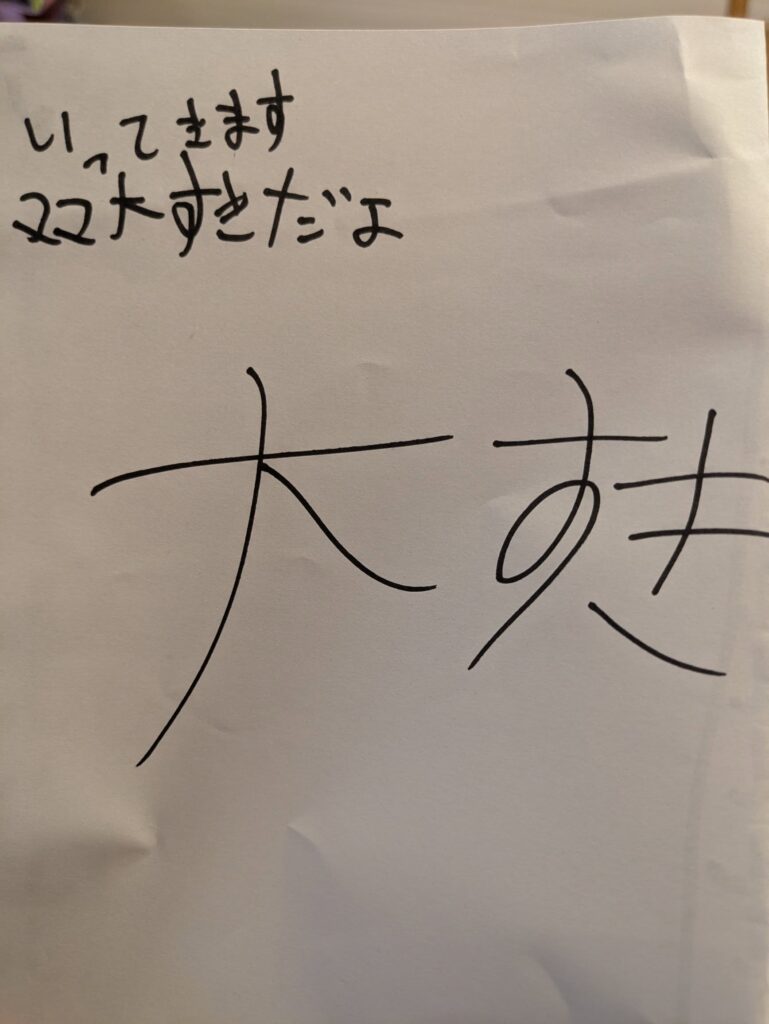 いってきます
ママ大すきだよ
大すき